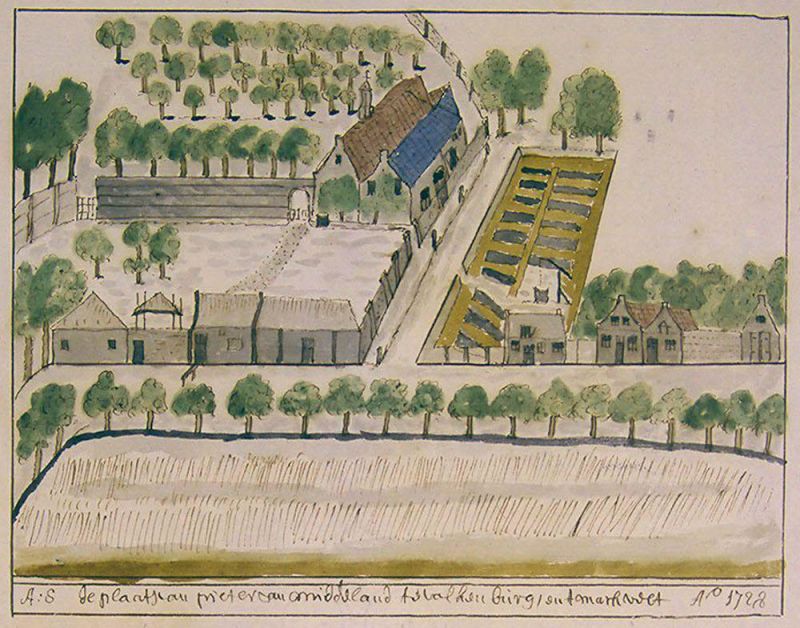 A:S de plaats van pieter van middeland te valkenburg / en t markvelt Ao 1728